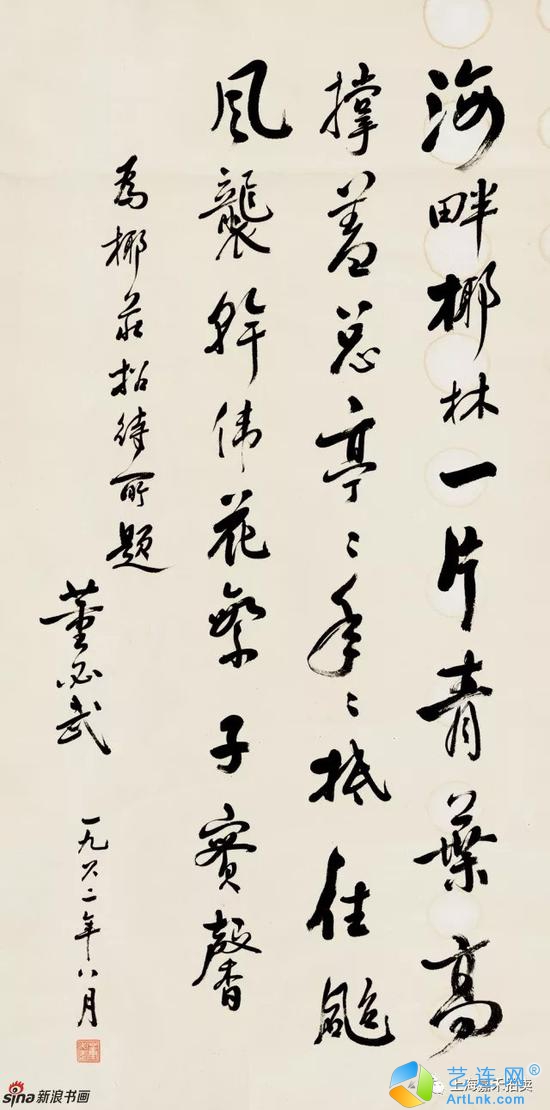 海畔椰林一片青葉高
撑蓋总亭〻年〻抵住颱
风襲幹伟花繁子實馨
為椰莊招待所题
董必武 一九六二年八月
sina新浪书画
上海嘉禾拍卖
艺连网®
ArtLnk.com